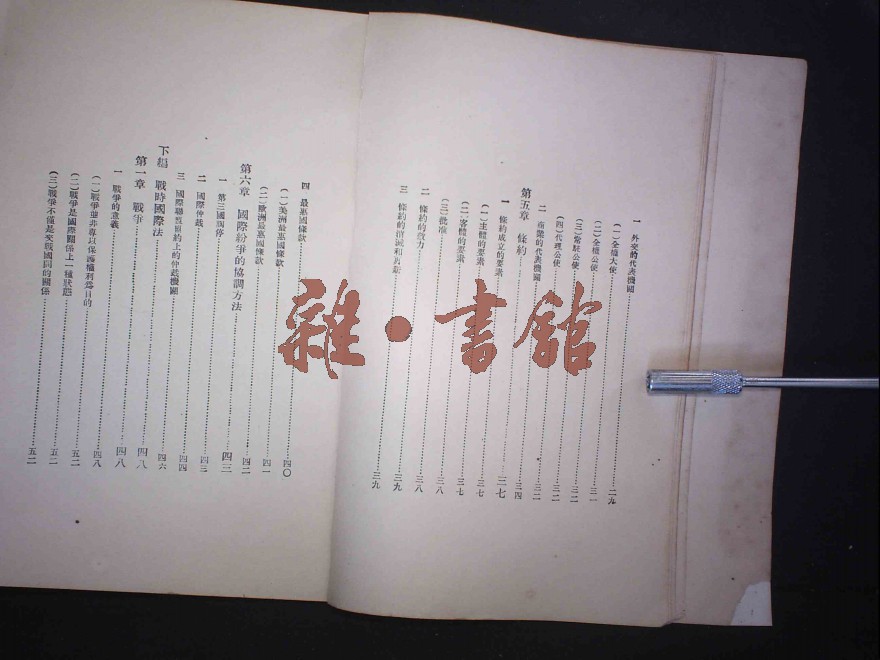 一 外交的代表機關……二九
(一)全權大使……二九
(二)全權公使……三一
(三)常駐公使……三二
(四)代理公使……三二
二 商業的代表機關……三二
第五章 條約……三四
一 條約成立的要素……三七
(一)主體的要素……三七
(二)客體的要素……三七
(三)批准……三八
二 條約的效力……三八
三 條約的消滅和……三九
……三九
四 最惠國條款……四〇
(一)美洲最惠國條款……四一
(二)歐洲最惠國條款……四一
第六章 國際紛爭的協調方法……四二
一 第三國調停……四三
二 國際仲裁……四三
三 國際聯盟規約上的仲裁機關……四四
下編 戰時國際法……四六
第一章 戰爭……四八
一 戰爭的意義……四八
(一)戰爭並非專以保滿權利爲目的……四八
(二)戰爭是國際關係上一種狀態……五二
(三)戰爭不僅是交戰國間的關係……五二
雜·書館